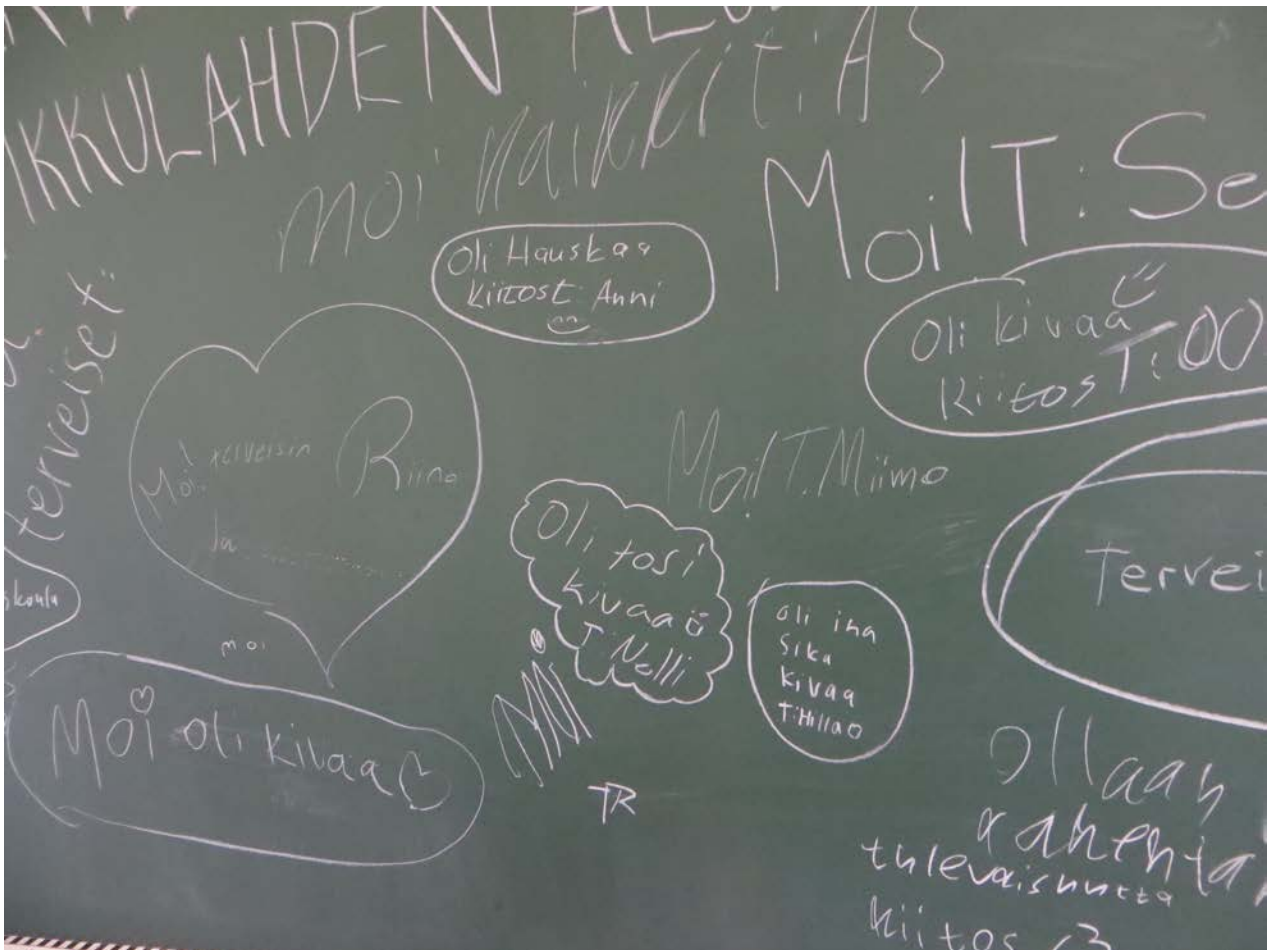 IKKULAHDEN
moi kaikki TiAS
MoiIT: Se
Oli Hauskaa
Kiitost: Anni
Oli kivaa
Kiitos T:OO
terveiset:
Moi! terveisin Riina
Ja
MoiIT.Miimo
Oli tosi
kivaa
T:Nelli
oli iha
sika
kivaa
T:Hillao
Tervei
skoulu
moi
Moi oli kivaa
MOI
TR
ollaan
rakenta
tulevaisuutta
kiitos <3